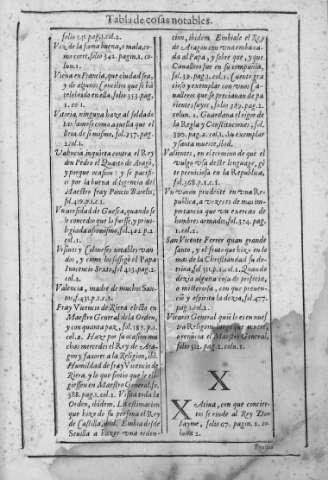 Tabla de cosas notables.
folio 231. pag. 1. col. 2.
Voz de la fama buena, o mala, como corre, folio 342. pagin. 1. colun. 1.
Viena en Francia, que ciudad sea, y de algunos Concilios que se hã celebrado en ella, folio 353. pag. 1. co 1.
Vitoria, ninguna haze al soldado tan famoso como aquella que el de si mismo, fol. 237. pag. 2. col. 2.
Valencia inquieta contra el Rey don Pedro el Quarto de Aragõ, y porque ocasion: y se pacificò por la buena diligencia del Maestro fray Poncio Barelis, fol. 419. p. 1. c. 1.
Vniuersidad de Guesca, quando se le concedio que lo fuesse, y priuilegiada assimismo, fol. 402. p. 2. col. 1.
Visitas
y como los el Papa Inocencio Sexto, fol. 423. pag. 2. col. 2.
Valencia, madre de muchos Santos, f. 431. p. 1. c. 1.
Fray Vicencio de Riera electo en Maestro General de la Orden, y con quanta paz, fol. 587. p. 1. col. 2. Haze por su ocasion muchas mercedes el Rey de Aragon y fauores a la Religion, ibi. Humildad de fray Vicencio de Riera, y lo que sintio que le eligiessen en Maestro General, fo. 388. pag. 1. col. 2. Visita toda la Orden, ibidem. La estimacion que hizo de su persona el Rey de Castilla, ibid. Embia desde Seuilla a hazer vna redencion, ibidem. Embiale el Rey de Aragon con vna embaxada al Papa, y sobre que, y que Caualleros fue en su compañia, fol. 39. pag. 1. col. 1. Cuento gracioso y exemplar con vnos Caualleros que se preciauan de parientes suyos, folio 389. pag. 2. colun. 1. Guardaua el rigor de la Regla y Constituciones, fol. 390. pag. 2. col. 1. Su exemplar y santa muerte, ibid.
Valientes, en el termino de que el vulgo vsa deste lenguage, no permitirlos en la Republica, fol. 368. p. 1. c. 1.
Vn varon prudente en vna Republica, a vezes es de mas importancia que vn exercito de hombres armados, fol. 374. pag. 1. col. 1.
San Vicente Ferrer quan grande santo, y el fruto que hizo en lo mas de la Christiandad su dotrina, fol. 431. p. 1. col. 2. Quando dezia alguna cosa de profecia, o misteriosa, con que prouecia y espiritu la dezia, fol. 477. pag. 1. col. 2.
Vicario General, quien lo es en nuestra Religion,
General, folio 512. pag. 2. colu. 1.
X
Xatiua, con que conciertos se rindio al Rey Don Iayme, folio 67. pagin. 1. coluna 2.